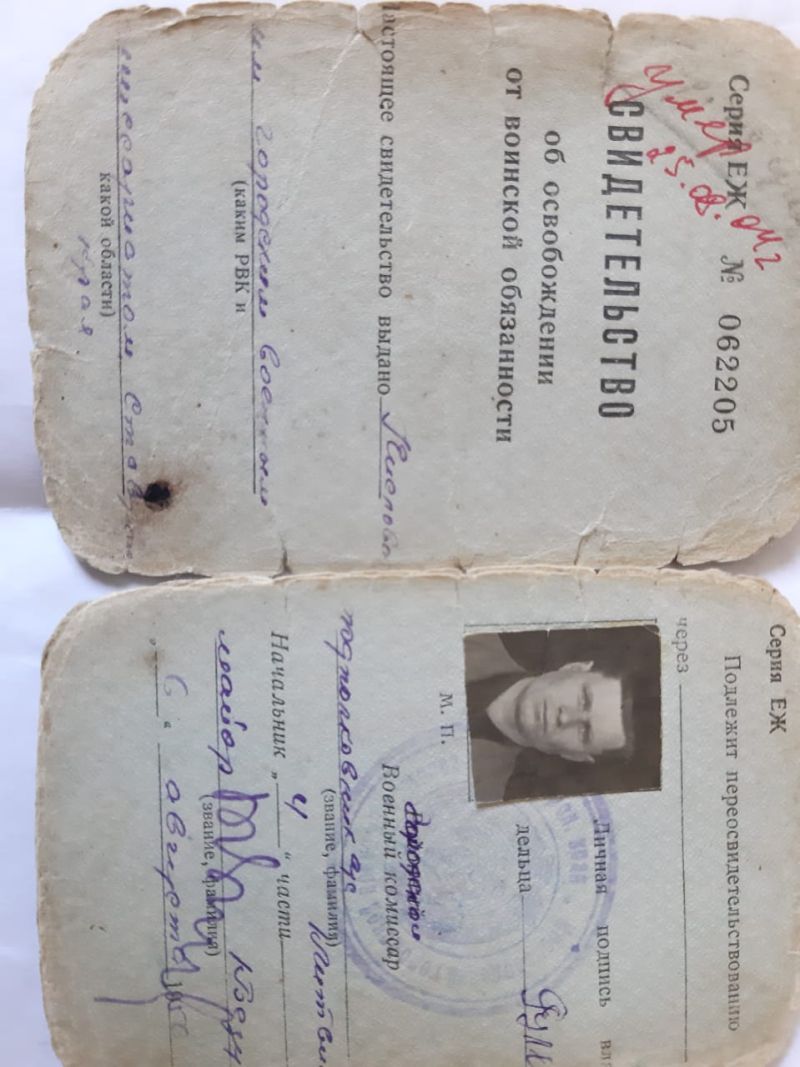 Серия ЕЖ № 062205
умер
СВИДЕТЕЛЬСТВО
об освобождении
от воинской обязанности
Настоящее свидетельство выдано Кислово
им городским военным
(каким РВК и
миссариатом Став
какой области)
края
Серия ЕЖ
Подлежит переосвидетельствованию
через
Личная подпись вла
дельца
М. П.
Военный комиссар
подполковник а/с
(звание, фамилия)
Начальник „ 4 “ части
майор
(звание, фамилия)
„ 6 “ августа